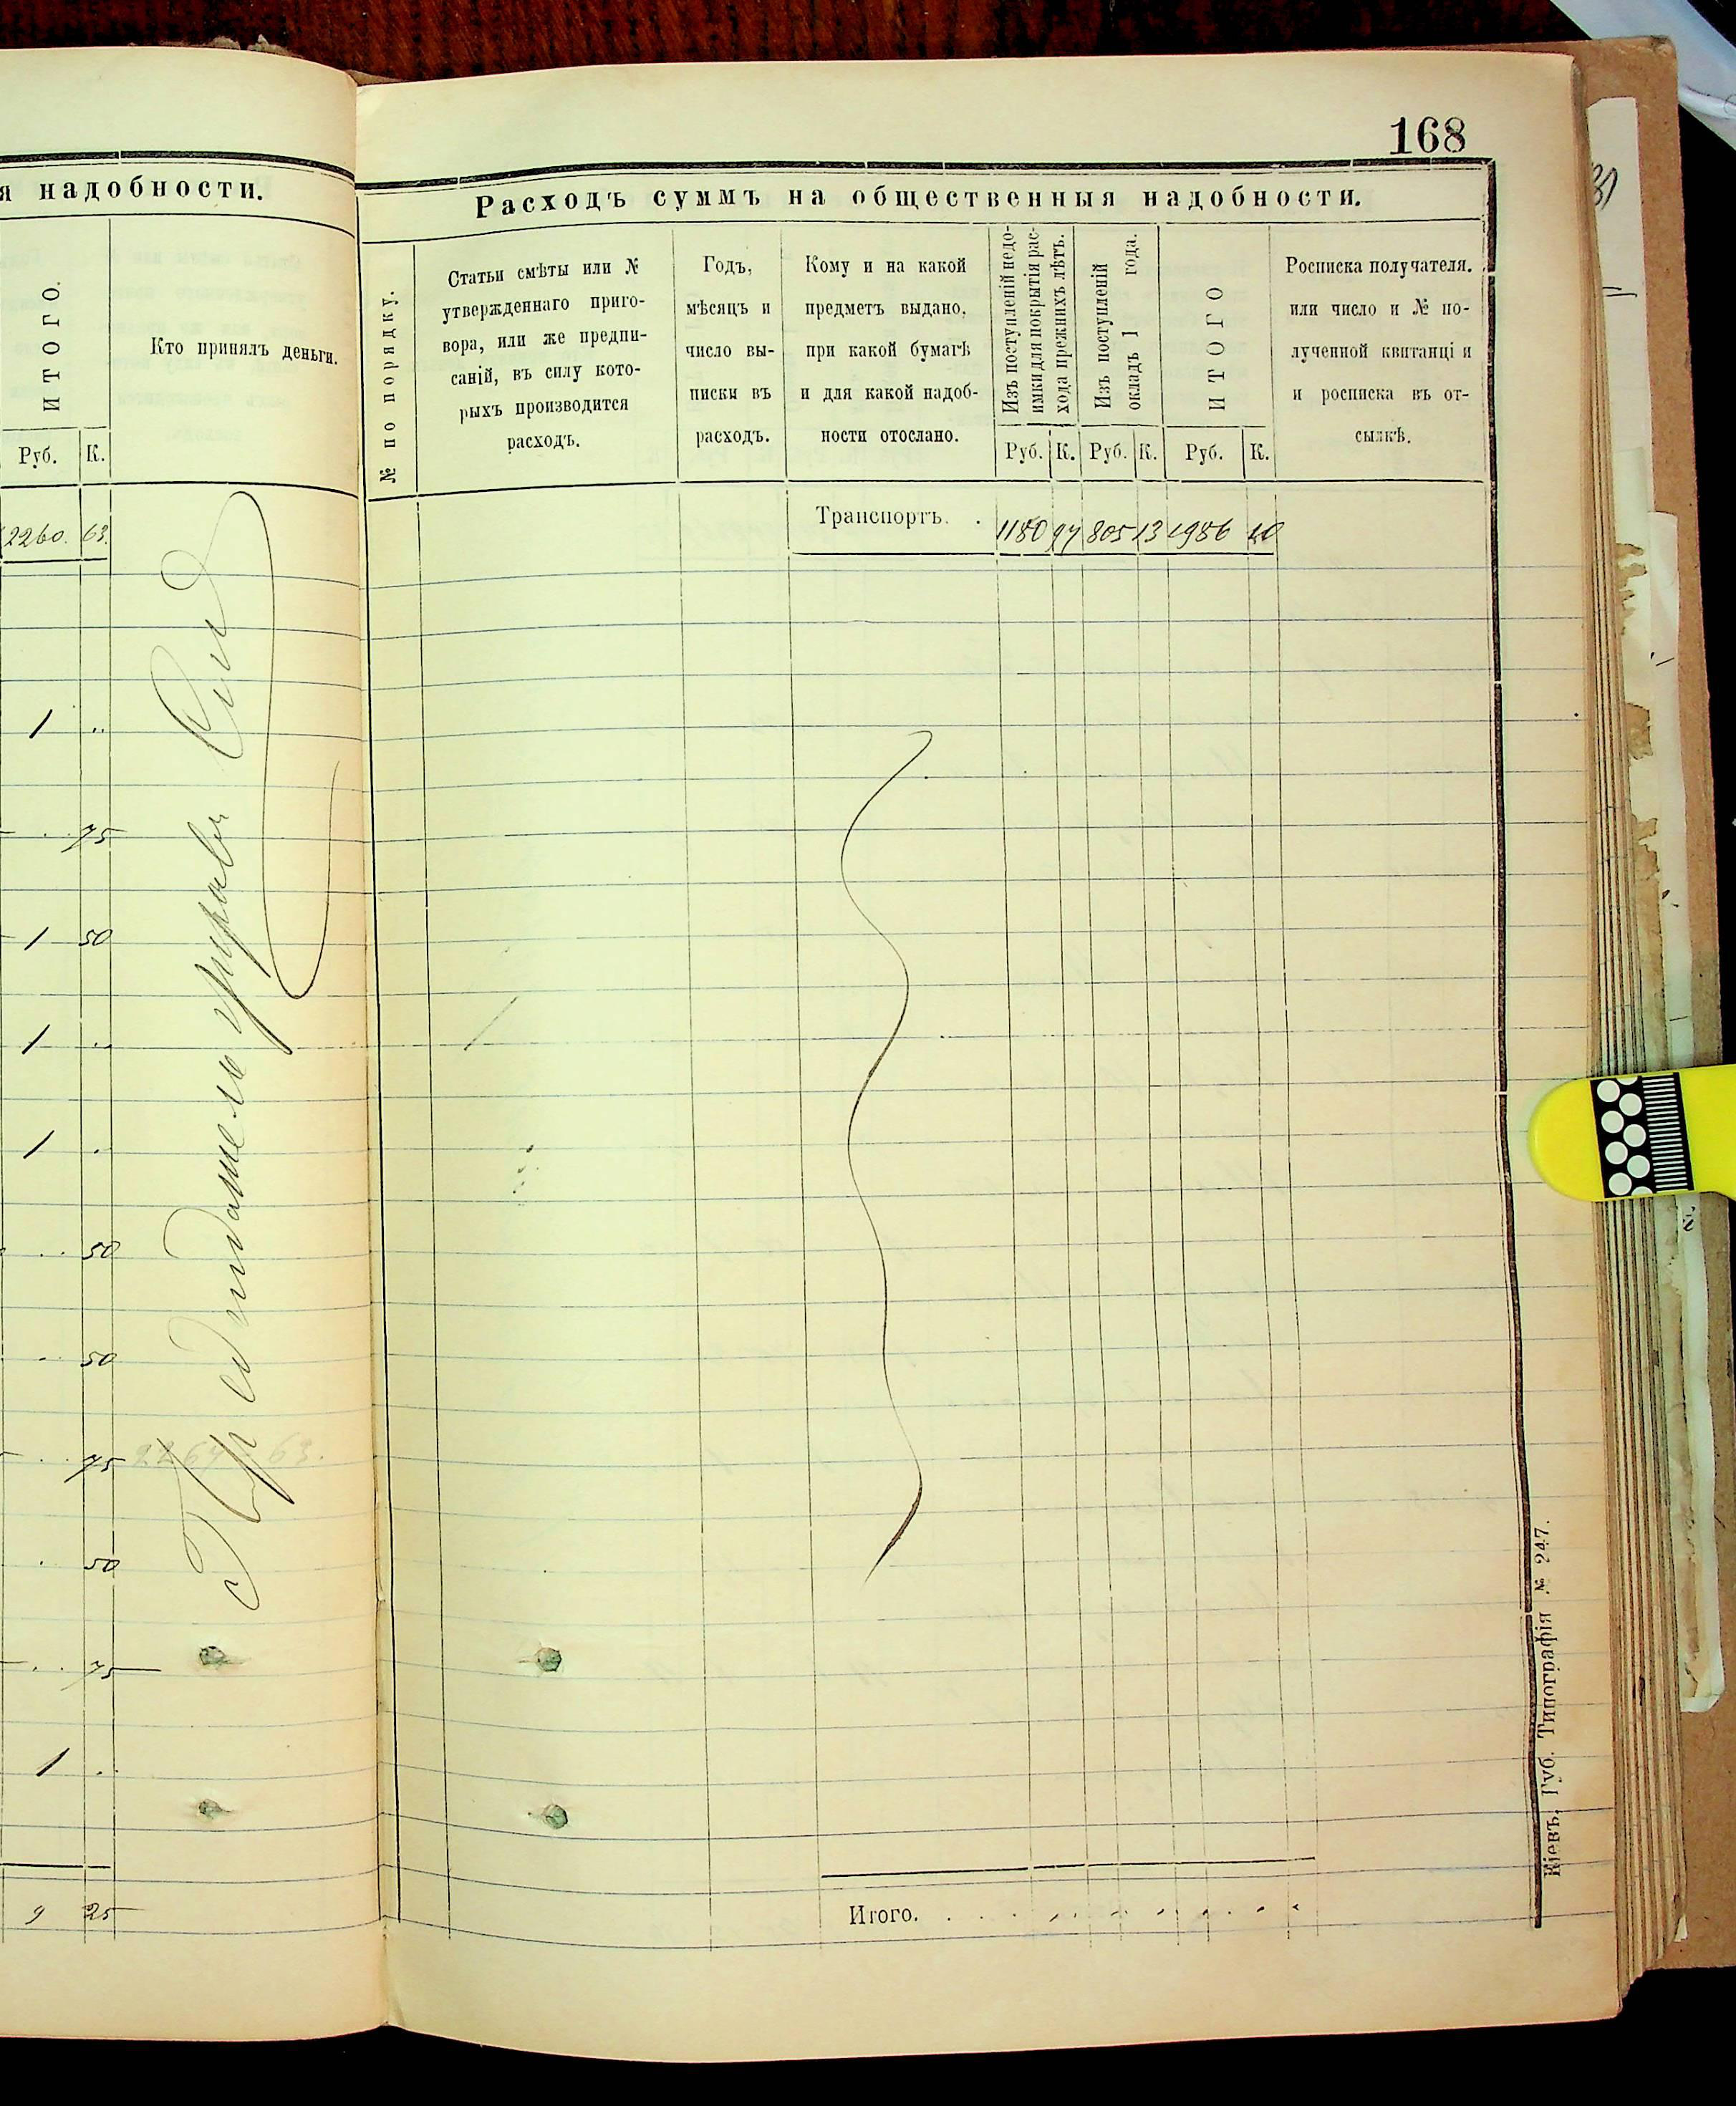 я надобности.
ИТОГО.
Кто принялъ деньги.
Руб. К.
2260. 63
1 ..
75
1 50
1 ..
1 .
50
50
75
2264 63.
50
75
1 .
9 25
168
Расходъ суммъ на общественныя надобности.
№ по порядку.
Статьи смѣты или №
утвержденнаго приго-
вора, или же предпи-
саній, въ силу кото-
рыхъ производится
расходъ.
Годъ,
мѣсяцъ и
число вы-
писки въ
расходъ.
Кому и на какой
предметъ выдано,
при какой бумагѣ
и для какой надоб-
ности отослано.
Изъ поступленій недо-
имки для покрытія рас-
хода прежнихъ лѣтъ.
Изъ поступленій
окладъ 1 года.
ИТОГО
Росписка получателя.
или число и № по-
лученной квитанці и
и росписка въ от-
сылкѣ.
Руб. К. Руб. К. Руб. К.
Транспортъ. . 1180 97 805 13 1986 10
Итого.
Кіевъ, Губ. Типографія № 247.